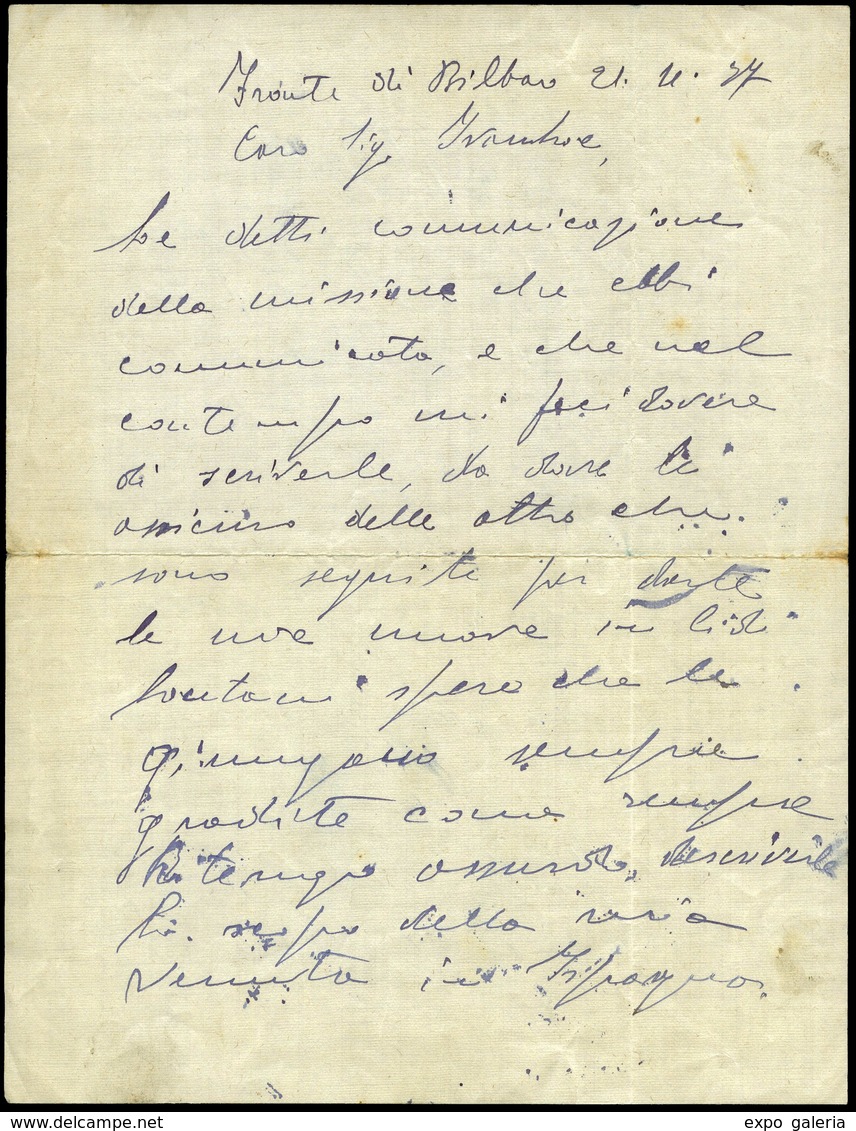 Fronte di Bilbao 21. 4. 37
Caro Sig. Ivanhoe,
Le detti comunicazione
della missione che ebbi
comunicata, e che nel
contempo mi feci dovere
di scriverle, da dove le
assicuro delle altre che
sono seguite per darle
le mie nuove in lidi
lontani spero che le
giungano sempre
gradite come sempre
Ritengo assurdo, descriverle
lo scopo della mia
venuta in Ispagna.
www.delcampe.net
expo galeria